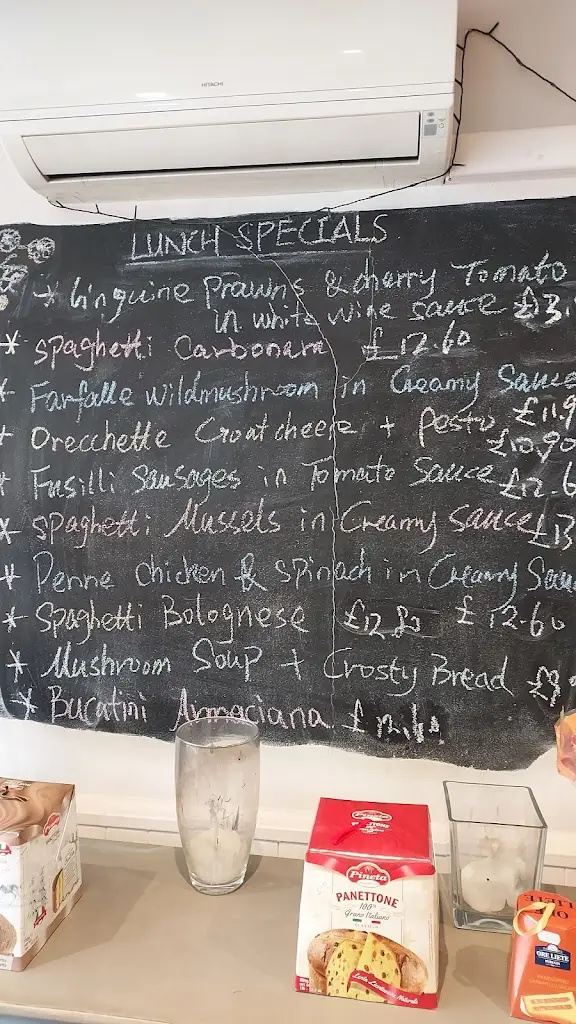 HITACHI
LUNCH SPECIALS
* Linguine Prawns & cherry Tomato
in white wine sauce £13.
* Spaghetti Carbonara £12.60
* Farfalle wildmushroom in Creamy Sauce
£11.9
* Orecchette Goatcheese + Pesto
£10.90
* Fusilli Sausages in Tomato Sauce £12.6
* Spaghetti Mussels in Creamy Sauce £13
* Penne chicken & spinach in Creamy Sau
* Spaghetti Bolognese £12.80 £12.60
* Mushroom Soup + Crosty Bread
* Bucatini Armaciana £12.60
Pineta
Pineta
PANETTONE
100%
Grano Italiano
Lenta Lievitazione Naturale
ORE LIETE